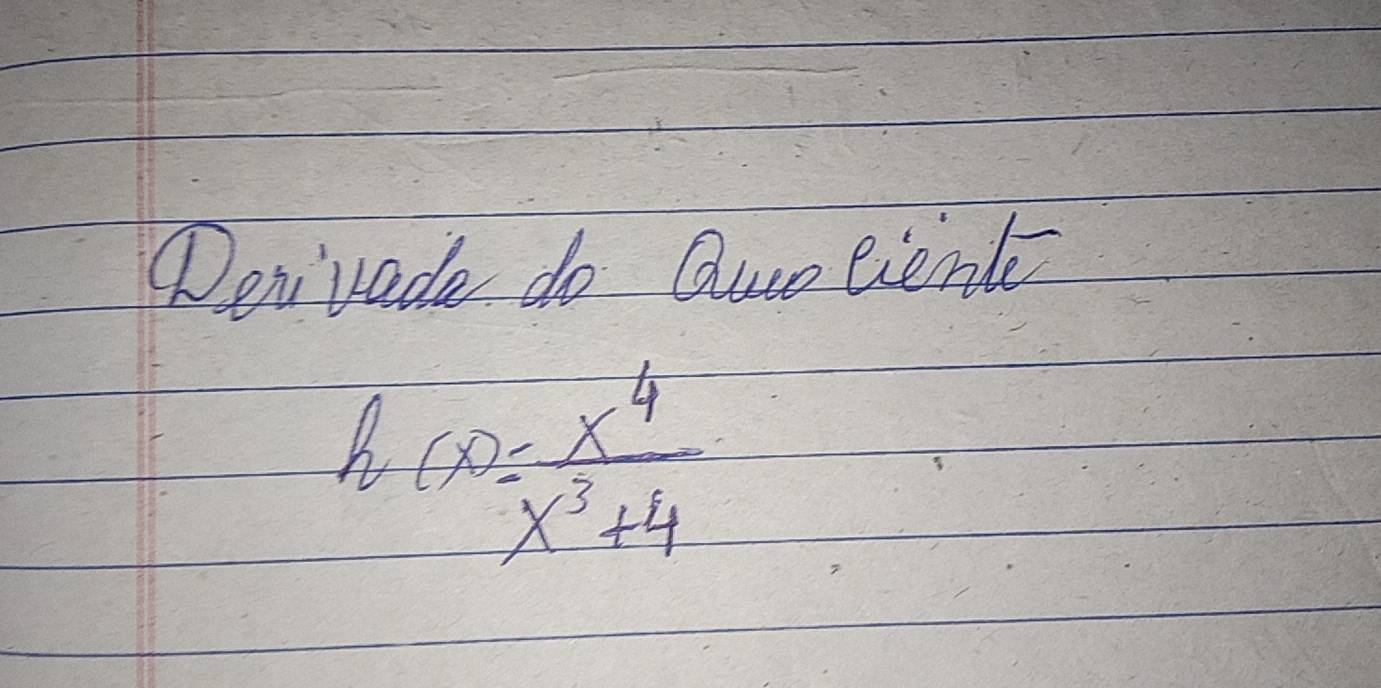 Derivada do Quociente
h(x)=x^4
x^3+4